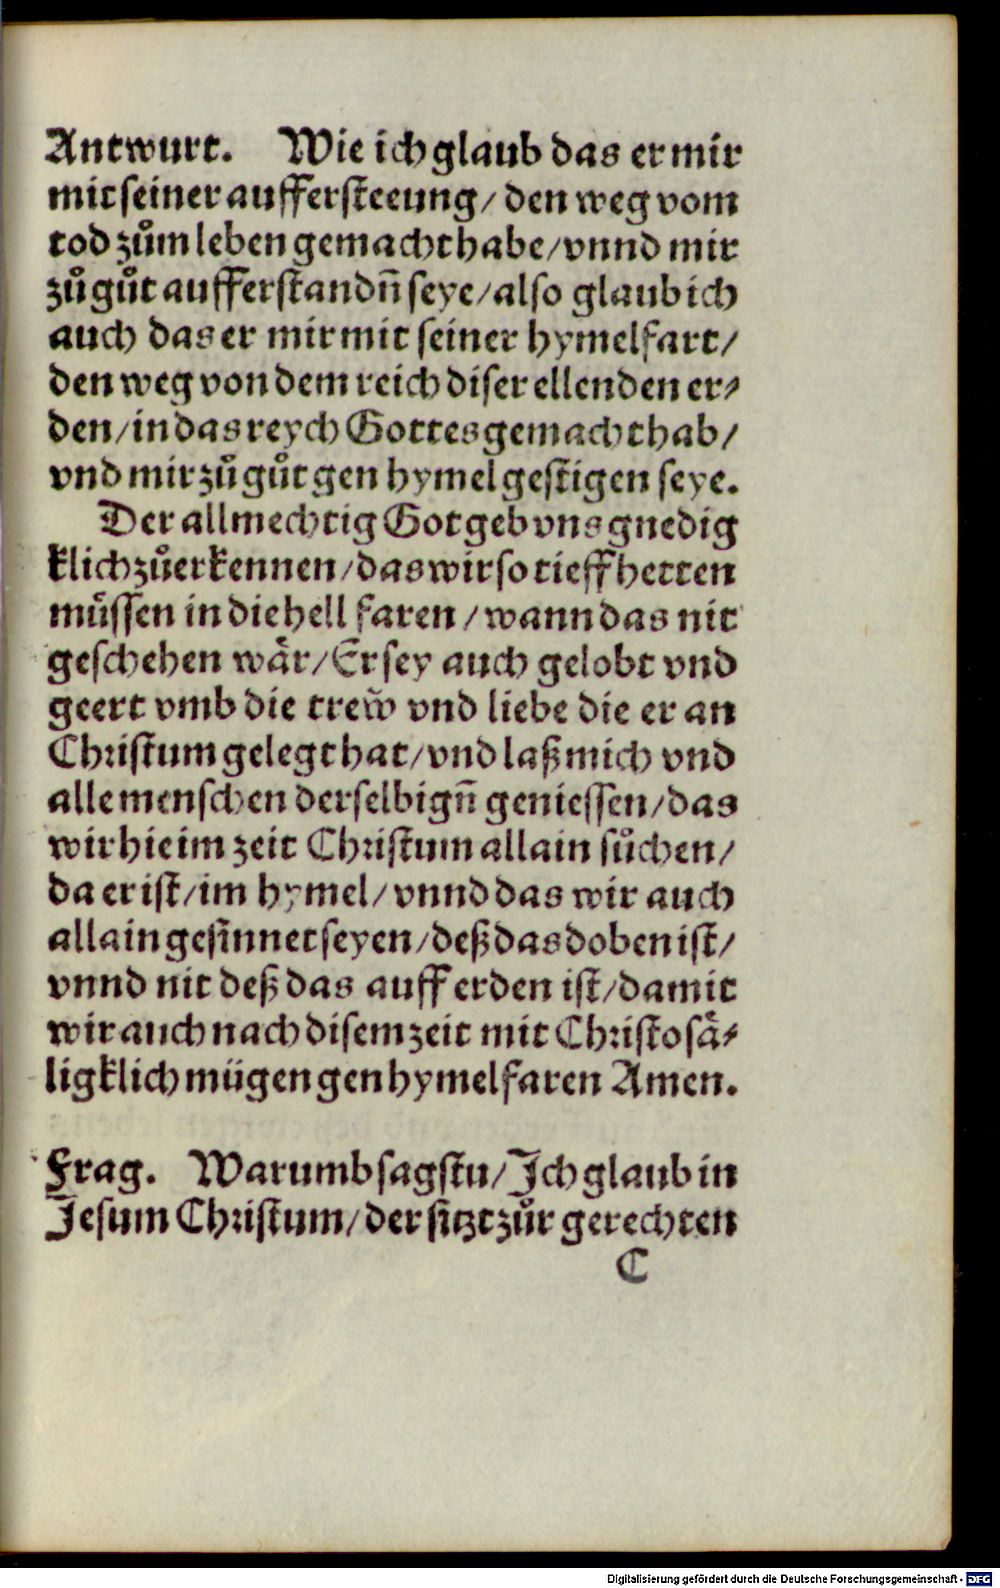 Antwurt. Wie ich glaub das er mir
mit seiner auffersteeung / den weg vom
tod zům leben gemacht habe / vnnd mir
zů gůt aufferstandn̄ seye / also glaub ich
auch das er mir mit seiner hymelfart /
den weg von dem reich diser ellenden er⸗
den / in das reych Gottes gemacht hab /
vnd mir zů gůt gen hymel gestigen seye.
Der allmechtig Got geb vns gnedig
klich zůerkennen / das wir so tieff hetten
můssen in die hell faren / wann das nit
geschehen waͤr / Er sey auch gelobt vnd
geert vmb die trew̃ vnd liebe die er an
Christum gelegt hat / vnd laß mich vnd
alle menschen derselbign̄ geniessen / das
wir hie im zeit Christum allain sůchen /
da er ist / im hymel / vnnd das wir auch
allain gesinnet seyen / deß das doben ist /
vnnd nit deß das auff erden ist / damit
wir auch nach disem zeit mit Christo saͤ⸗
ligklich mügen gen hymel faren Amen.
Frag. Warumb sagstu / Ich glaub in
Jesum Christum / der sitzt zůr gerechten
C
Digitalisierung gefördert durch die Deutsche Forschungsgemeinschaft - DFG